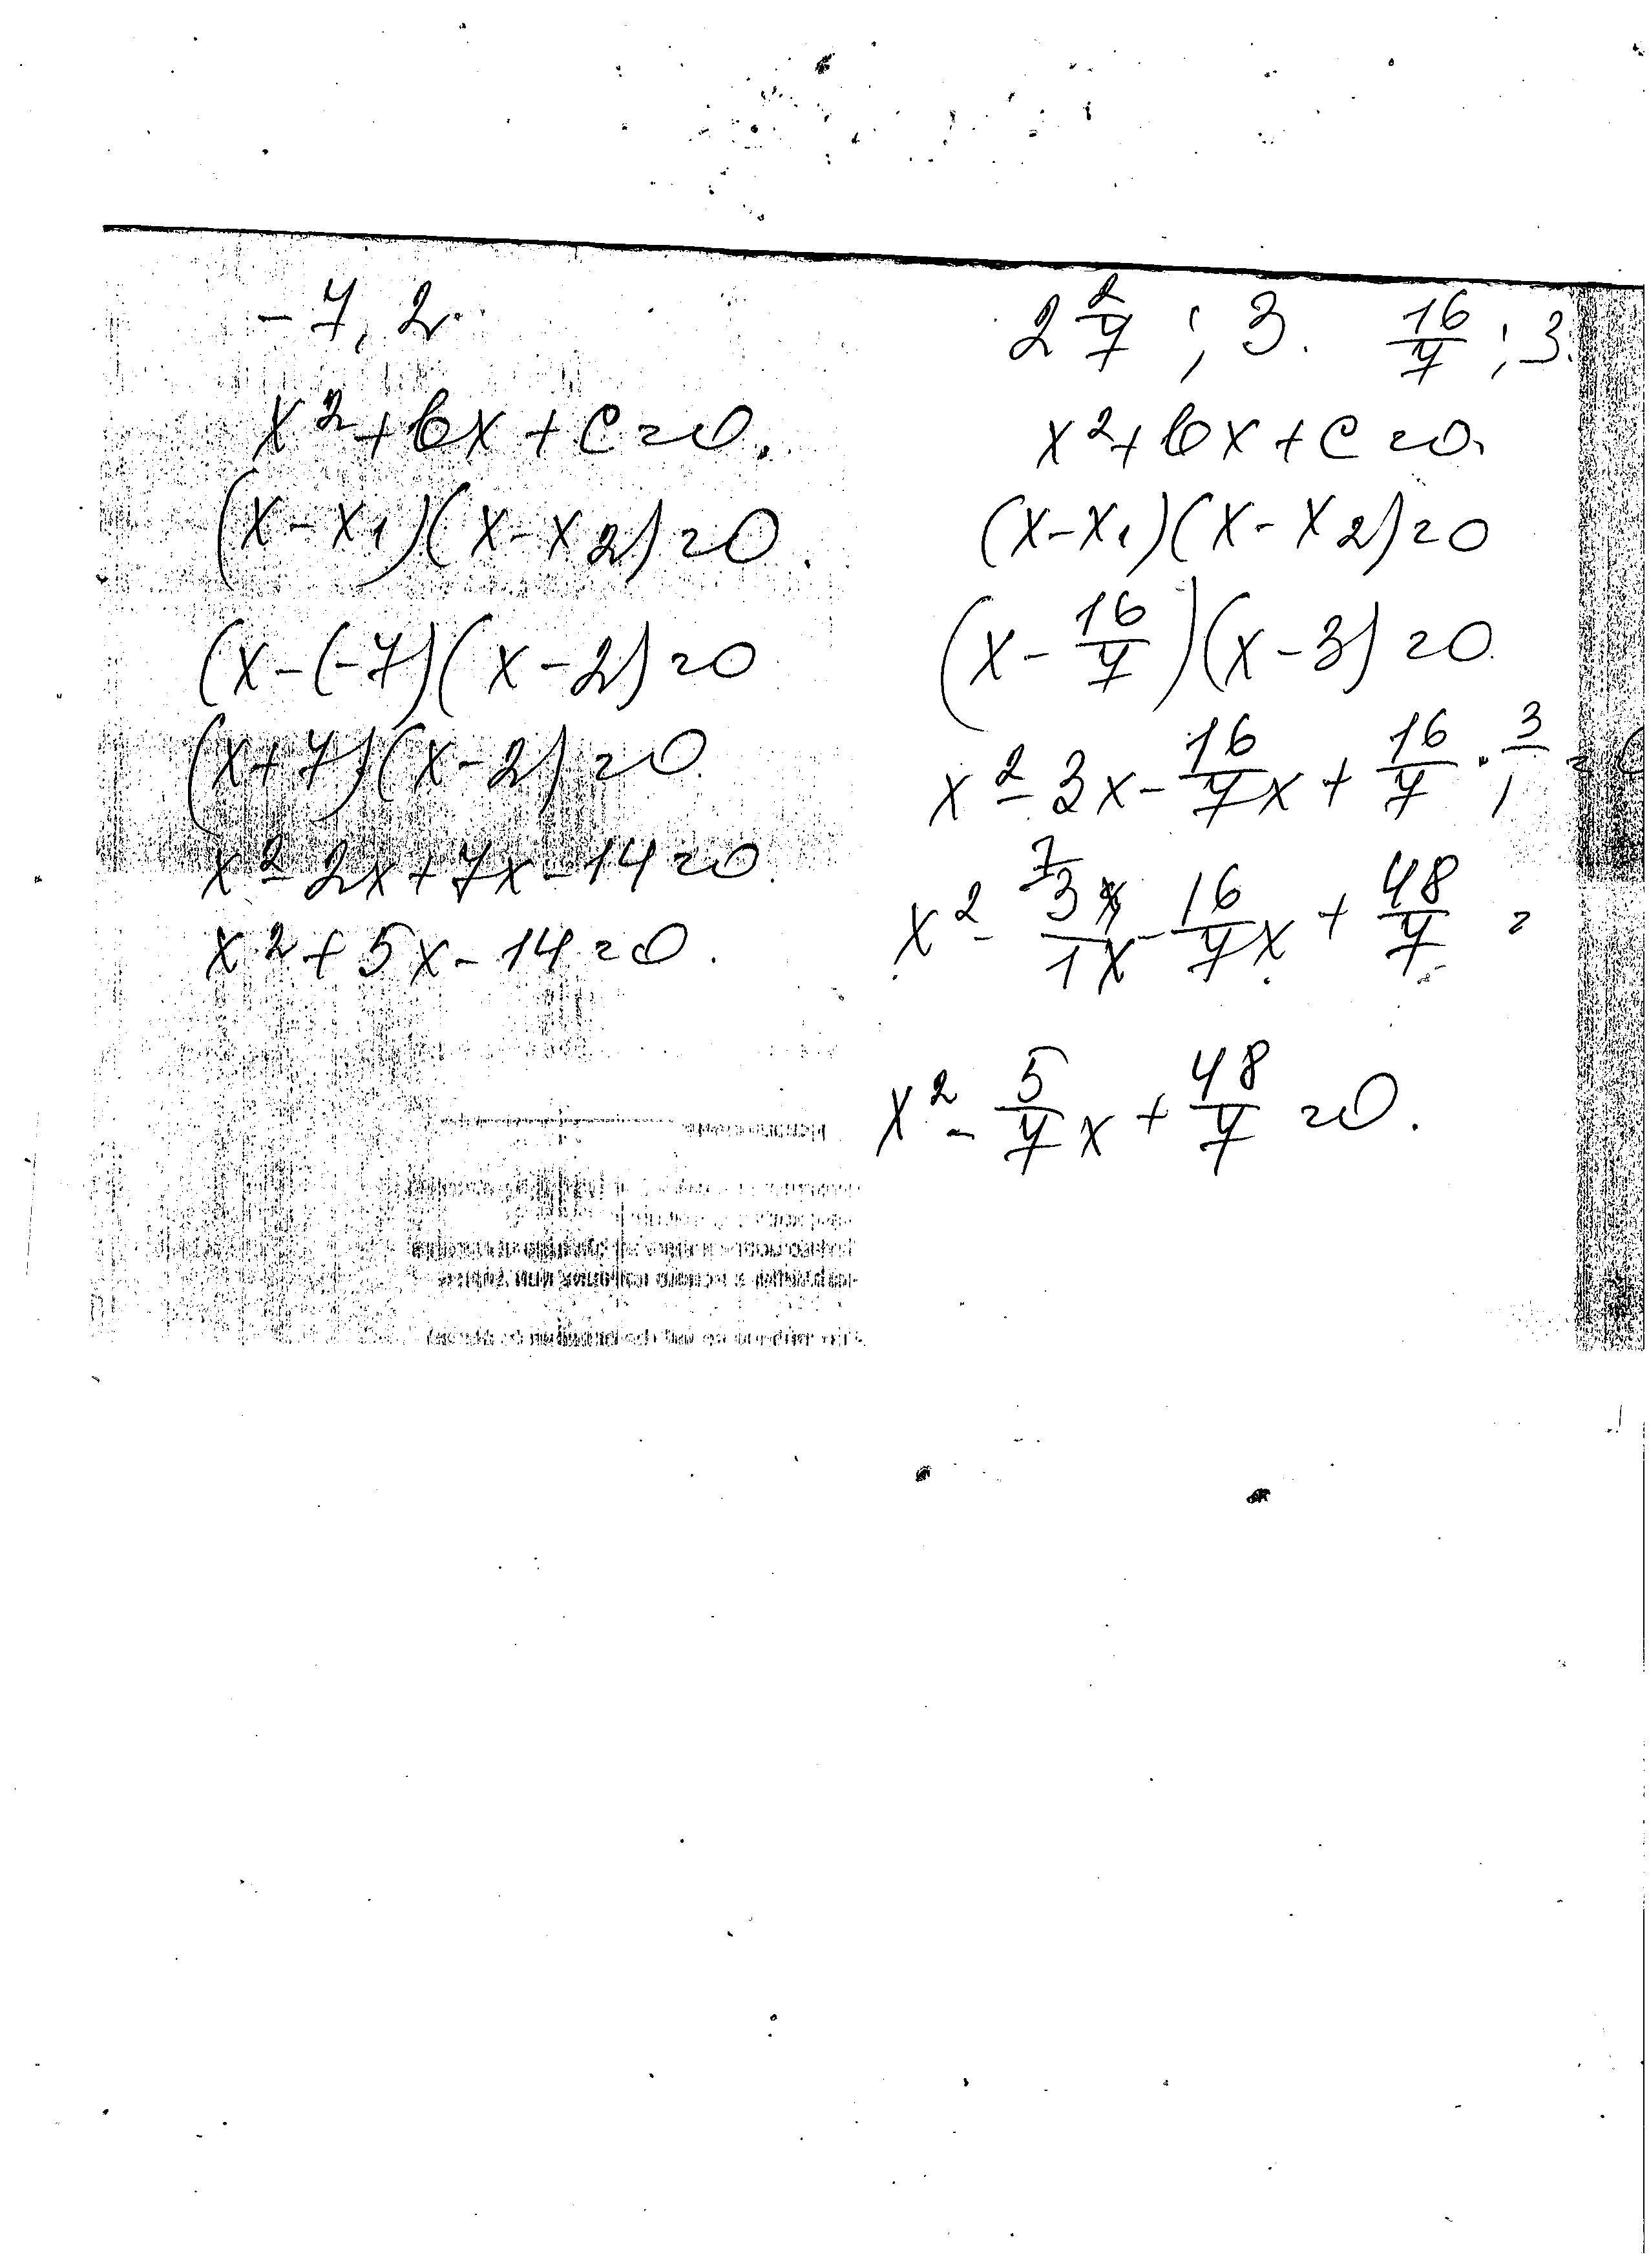 -7, 2.
x² + bx + c = 0.
(x - x₁)(x - x₂) = 0.
(x - (-7)(x - 2) = 0
(x + 7)(x - 2) = 0.
x² - 2x + 7x - 14 = 0.
x² + 5x - 14 = 0.
2 2/7 ; 3. 16/7 ; 3.
x² + bx + c = 0.
(x - x₁)(x - x₂) = 0
(x - 16/7)(x - 3) = 0.
x² - 3x - 16/7 x + 16/7 · 3/1 = 0
x² - 3/1 x - 16/7 x + 48/7 =
x² - 5/7 x + 48/7 = 0.